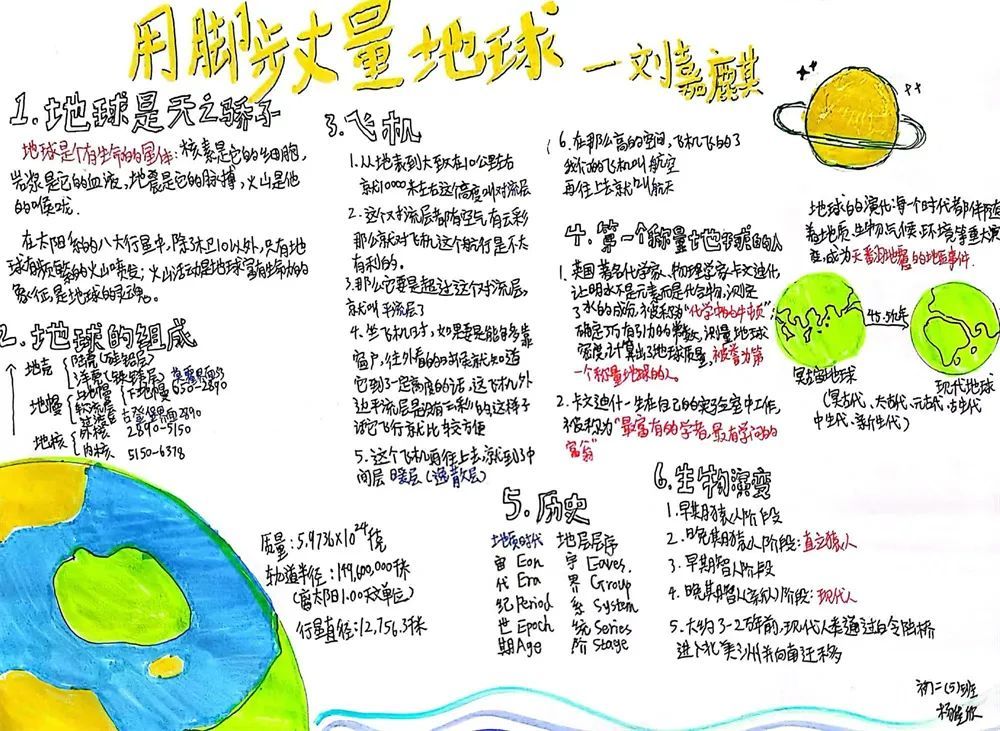 用脚步丈量地球 —刘嘉麒
1.地球是天之骄子
地球是个有生命的星体:核素是它的细胞,
岩浆是它的血液,地震是它的脉搏,火山是他
的喉咙。
在太阳系的八大行星中,除了木卫10以外,只有地
球有频繁的火山喷发;火山活动是地球富有活力的
象征,是地球的灵魂。
2.地球的组成
地壳
陆壳(硅铝层)
洋壳(硅镁层) 莫霍界面33
地幔
上地幔
下地幔 650-2890
软流层
过渡层
古登堡界面2890
地核
外核 2890-5150
内核 5150-6378
质量:5.9736×10²⁴
轨道半径:149,600,000千米
(离太阳1.00天文单位)
行星直径:12,756.3千米
3.飞机
1.从地表到大致在10公里左右
就10000米左右这个高度叫对流层
2.这个对流层都有空气有云彩
那么就对飞机这个航行是不太
有利的。
3.那么它要是超过这个对流层,
就叫平流层了
4.坐飞机时,如果要是能够靠
窗户,往外看的时候就知道
它到了一定高度的话,这飞机外
边平流层是没有云彩的这样子
它飞行就比较方便
5.这个飞机再往上去,就到了中
间层 暖层(逸散层)
6.在那么高的空间,飞机飞的了
我们的飞机叫航空
再往上去就叫航天
4.第一个称量地球的人
1.英国著名化学家、物理学家卡文迪什
让明水不是元素而是化合物,测定
了水的成份,被称为"化学中的牛顿";
确定万有引力的常数,测量地球
密度计算出了地球质量,被誉为第
一个称量地球的人。
2.卡文迪什一生在自己的实验室中工作,
被称为"最富有的学者,最有学问的
富翁"
5.历史
地质时代 地层层序
宙 Eon 宇 Eaves.
代 Era 界 Group
纪 Period 系 System
世 Epoch 统 Series
期 Age 阶 Stage
6.生物演变
1.早期猿人阶段
2.晚期猿人阶段:直立猿人
3.早期智人阶段
4.晚期智人(新人)阶段:现代人
5.大约3-2万年前,现代人来通过白令陆桥
进入北美洲并向南迁移
地球的演化:每个时代都伴随
着地质、生物、气候、环境等重大演
变,成为天翻地覆的地质事件.
45.5亿年
冥古宙地球
现代地球
(冥古代、太古代、元古代、古生代
中生代、新生代)
初二(5)班